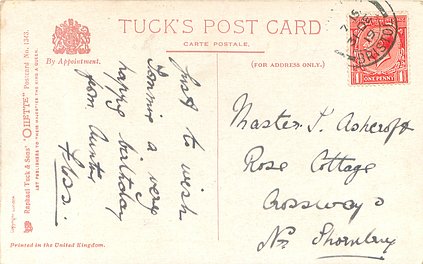 TUCK'S POST CARD
CARTE POSTALE.
By Appointment.
(FOR ADDRESS ONLY.)
Raphael Tuck & Sons' "OILETTE" Postcard No. 1363.
ART PUBLISHERS TO THEIR MAJESTIES THE KING & QUEEN.
Just to wish
Tommie a very
happy birthday
from Auntie
Floss.
ONE PENNY
BRISTOL
Master T. Ashcroft
Rose Cottage
Crossways
Nr Thornbury
Printed in the United Kingdom.